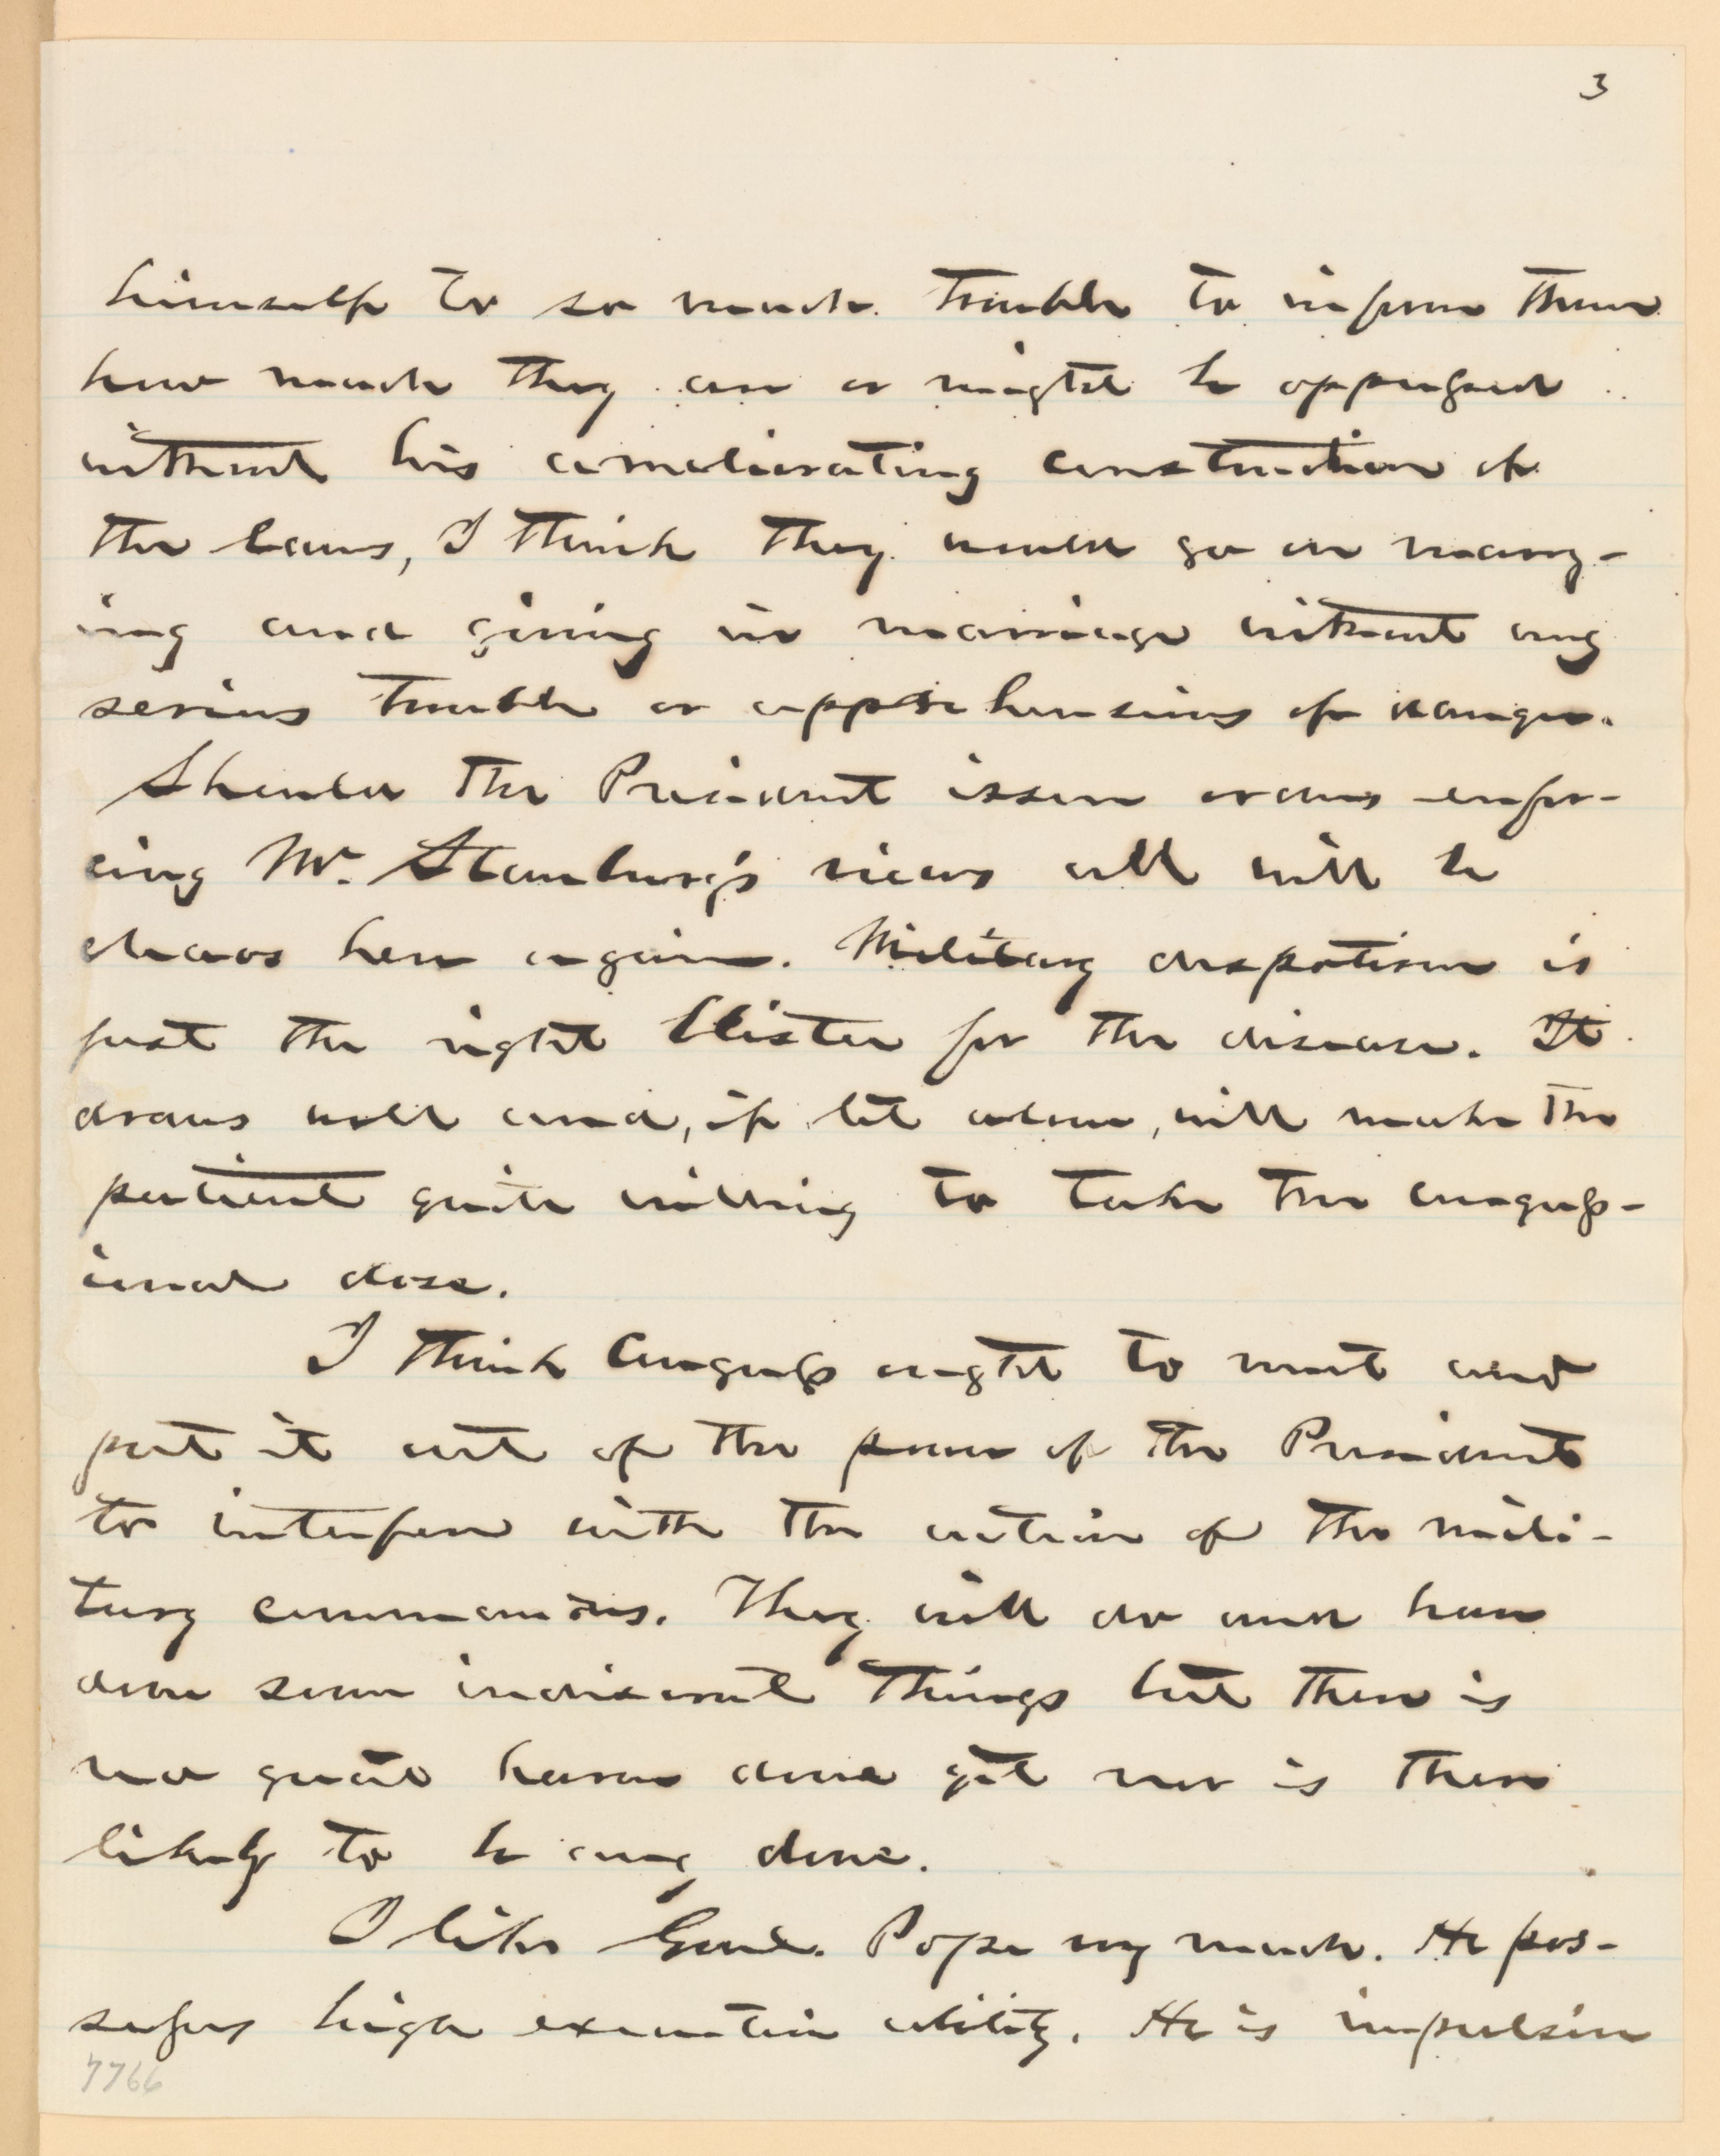 3
himself to so much trouble to inform them
how much they are or might be oppressed
without his ameliorating construction of
the laws, I think they would go on marry-
ing and giving in marriage without any
serious trouble or apprehensions of danger.
Should the President issue orders enfor-
cing Mr. Stanburg's views all will be
chaos here again. Military despotism is
just the right blister for the disease. It
draws well and, if let alone, will make the
patient quite willing to take the congress-
ional dose.
I think Congress ought to meet and
put it out of the power of the President
to interfere with the action of the mili-
tary commanders. They will do and have
done some indiscreet things but there is
no great harm done yet nor is there
likely to be any done.
I like Genl. Pope very much. He pos-
sesses high executive ability. He is impulsive
7766